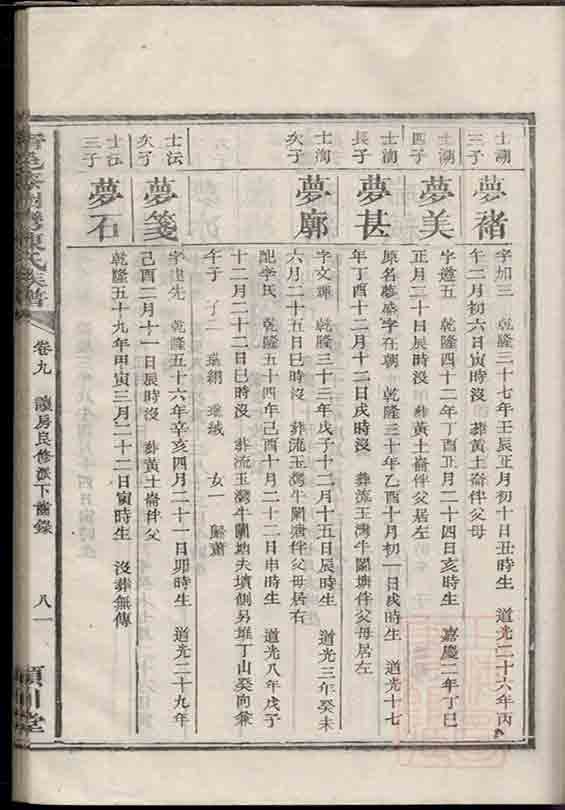 士湖
三子
夢褚
字如三 乾隆三十七年壬辰正月初十日丑時生 道光二十六年丙
午二月初六日寅時沒 葬黃土崙伴父母
士湖
四子
夢美
字遵五 乾隆四十二年丁酉正月二十四日亥時生 嘉慶二年丁巳
正月三十日辰時沒 葬黃土崙伴父居左
士洵
長子
夢甚
原名夢盛字在朝 乾隆三十年乙酉十月初一日戌時生 道光十七
年丁酉十二月十二日戌時沒 葬流玉灣牛闌塘伴父母居左
士洵
次子
夢廓
字文 乾隆三十三年戊子十二月十五日辰時生 道光三年癸未
六月二十五日巳時沒 葬流玉灣牛闌塘伴父母居右
配李氏 乾隆五十四年己酉十月二十二日申時生 道光八年戊子
十二月二十二日巳時沒 葬流玉灣牛闌塘夫墳側另堆丁山癸向兼
午子 子二 瑞絨 女一 歸蕭
士法
次子
夢箋
字建先 乾隆五十六年辛亥四月二十一日卯時生 道光二十九年
己酉二月十一日辰時沒 葬黃土崙伴父
士法
三子
夢石
乾隆五十九年甲寅三月二十二日寅時生 沒葬無傳
陳氏族譜
卷九
讓房良修派下齒錄
八一
潁川堂